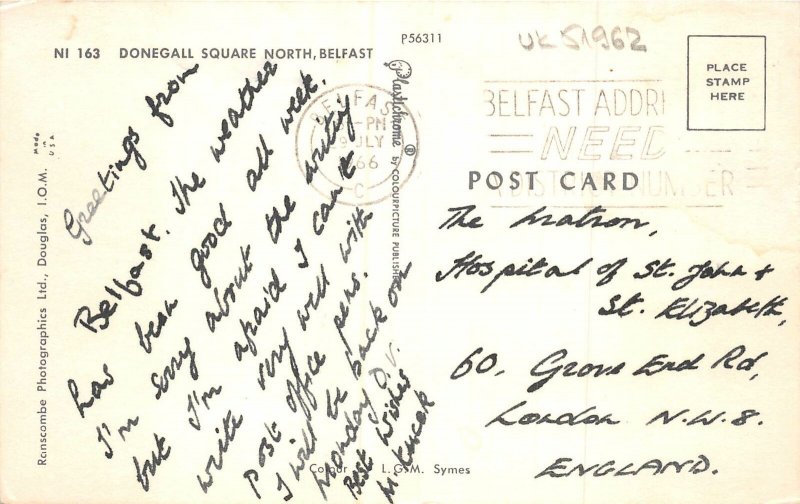 P56311
UK 51962
NI 163 DONEGALL SQUARE NORTH, BELFAST
Ranscombe Photographics Ltd., Douglas, I.O.M.
Made in U.S.A.
Plastichrome ® by COLOURPICTURE PUBLISHERS
Colour L.G.M. Symes
BELFAST
-PM
9 JLY
66
C
BELFAST ADDRE
NEED
DISTRICT NUMBER
PLACE
STAMP
HERE
POST CARD
Greetings from
Belfast. The weather
has been good all week.
I'm sorry about the writing
but I'm afraid I can't
write very well with
post office pens.
I will be back on
Monday D.V.
Best Wishes
The Matron,
Hospital of St. John &
St. Elizabeth,
60, Grove End Rd,
London N.W.8.
ENGLAND.